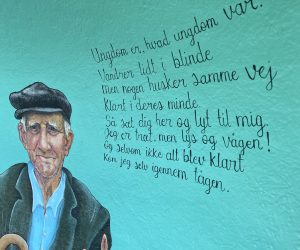 Ungdom er, hvad ungdom var.
Vandrer lidt i blinde
Men nogen husker samme vej
Klart i deres minde.
Så sæt dig her og lyt til mig
Jeg er træt, men lys og vågen!
Og selvom ikke alt blev klart
Kom jeg selv igennem tågen.